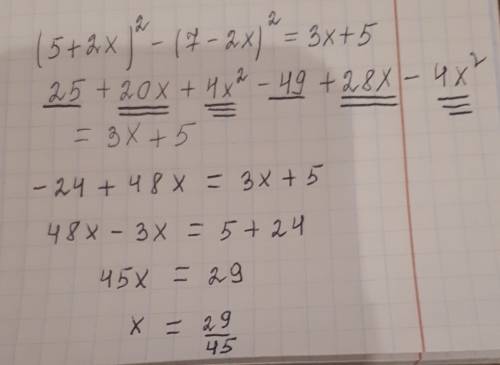 (5+2x)² - (7-2x)² = 3x+5
25 + 20x + 4x² - 49 + 28x - 4x²
= 3x + 5
-24 + 48x = 3x + 5
48x - 3x = 5 + 24
45x = 29
x = 29/45